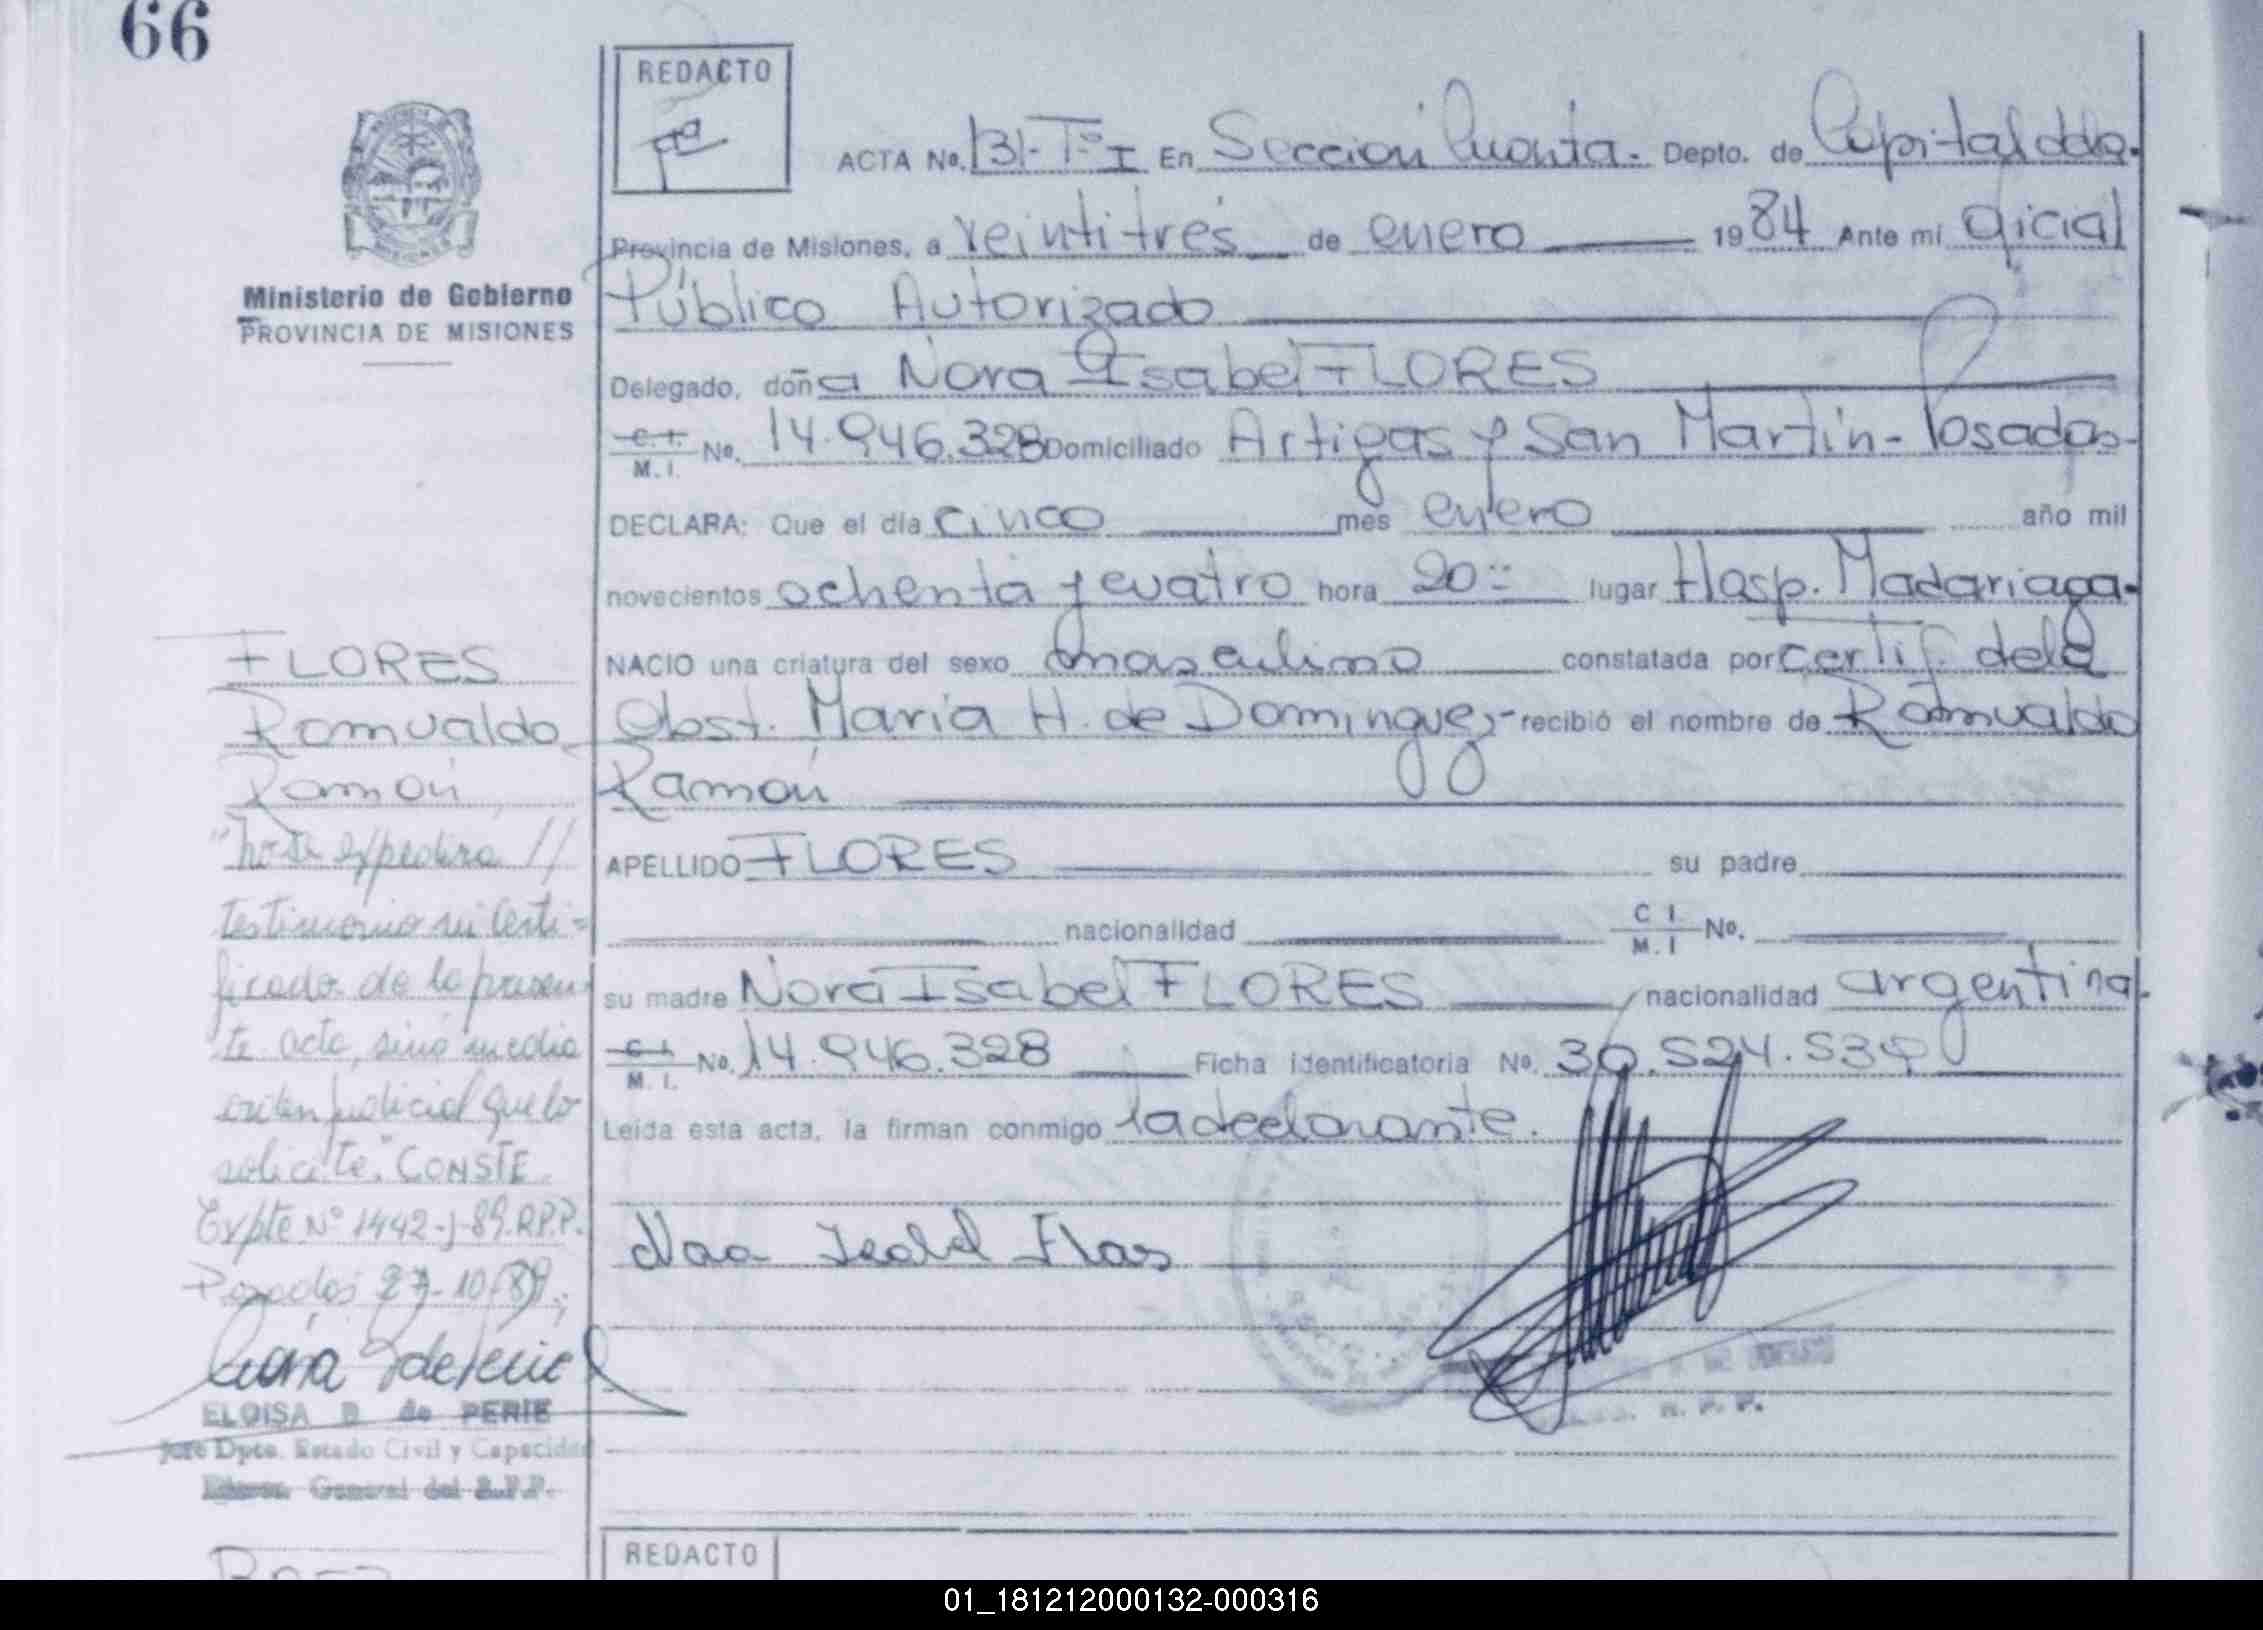 66
REDACTO
ACTA No. 131-Tº I En Sección Cuarta.- Depto. de Capital ddo.
Ministerio de Gobierno
PROVINCIA DE MISIONES
Provincia de Misiones, a veintitrés de enero 1984 Ante mi Oficial
Público Autorizado
Delegado, doña Nora Isabel FLORES
C. I. M. I. No. 14.946.328 Domiciliado Artigas y San Martín - Posadas-
DECLARA: Que el día cinco mes enero año mil
novecientos ochenta y cuatro hora 20:- lugar Hosp. Madariaga.
NACIO una criatura del sexo masculino constatada por certif. dela
Obst. María H. de Dominguez- recibió el nombre de Romualdo
Ramón
APELLIDO FLORES su padre
nacionalidad C I M. I No.
su madre Nora Isabel FLORES nacionalidad argentina.
C. I. M. I. No. 14.946.328 Ficha Identificatoria No. 30.524.534
Leída esta acta, la firman conmigo la declarante.
Nora Isabel Flores
R. P. P.
FLORES
Romualdo
Ramón
"no se expedira //
testimonio ni certi=
ficado de la presen-
te acta, sino media
orden judicial que lo
solicite." CONSTE.
Expte Nº 1442-J-89.R.P.P.
Posadas 27-10-89.;
ELOISA B de PERIE
Jefe Dpto. Estado Civil y Capacidad
General del R.P.P.
REDACTO
01_181212000132-000316